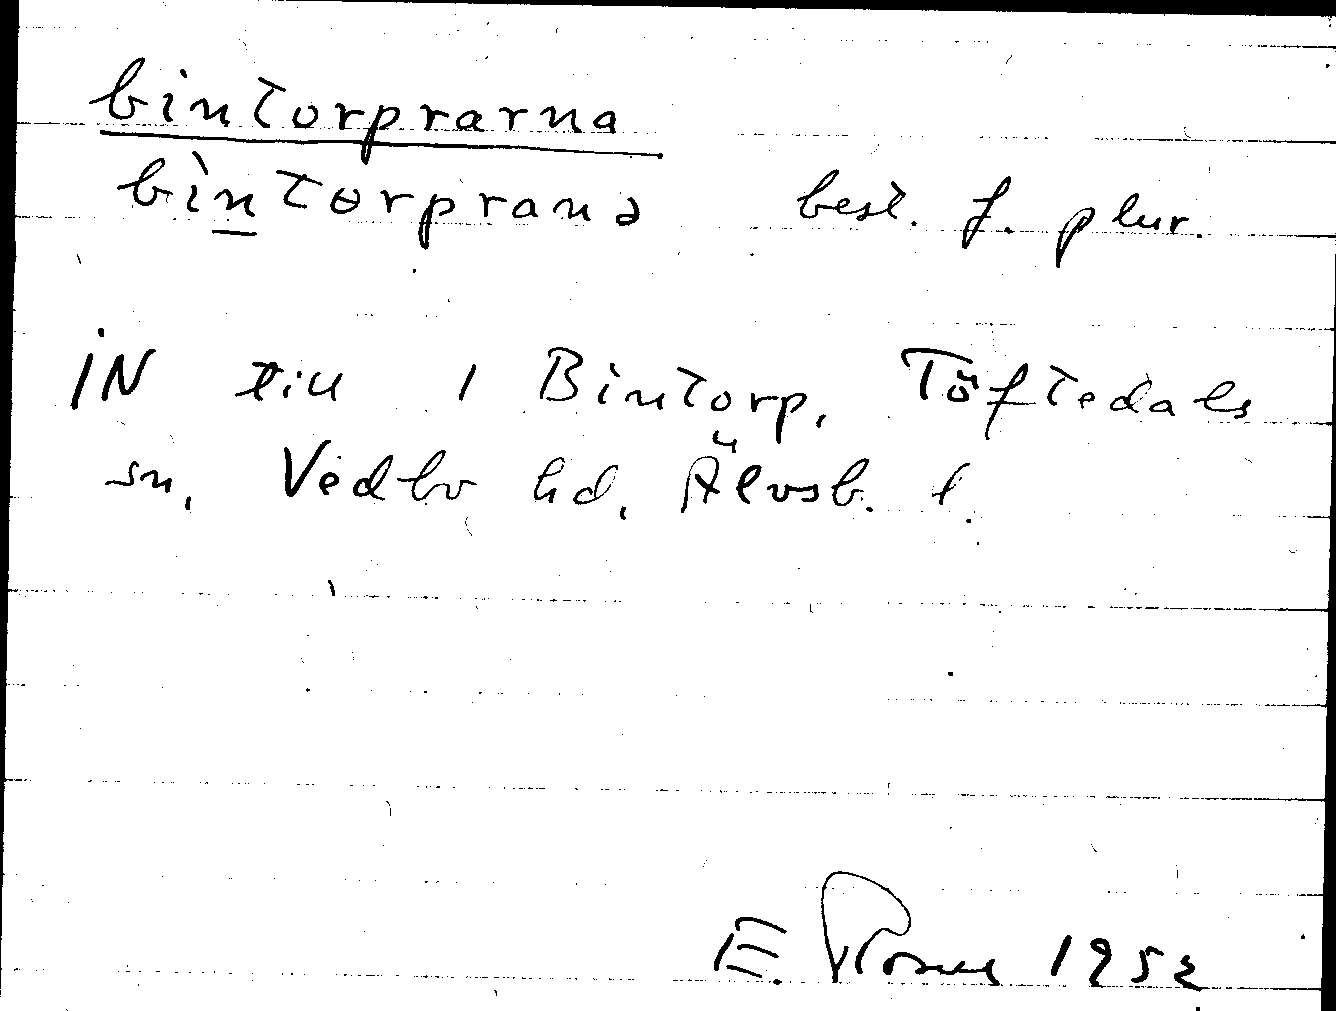 bintorprarna
bìntɵrprana best. f. plur.
IN till 1 Bintorp, Töftedals
sn, Vedbo hd, Älvsb. l.
E. 1952